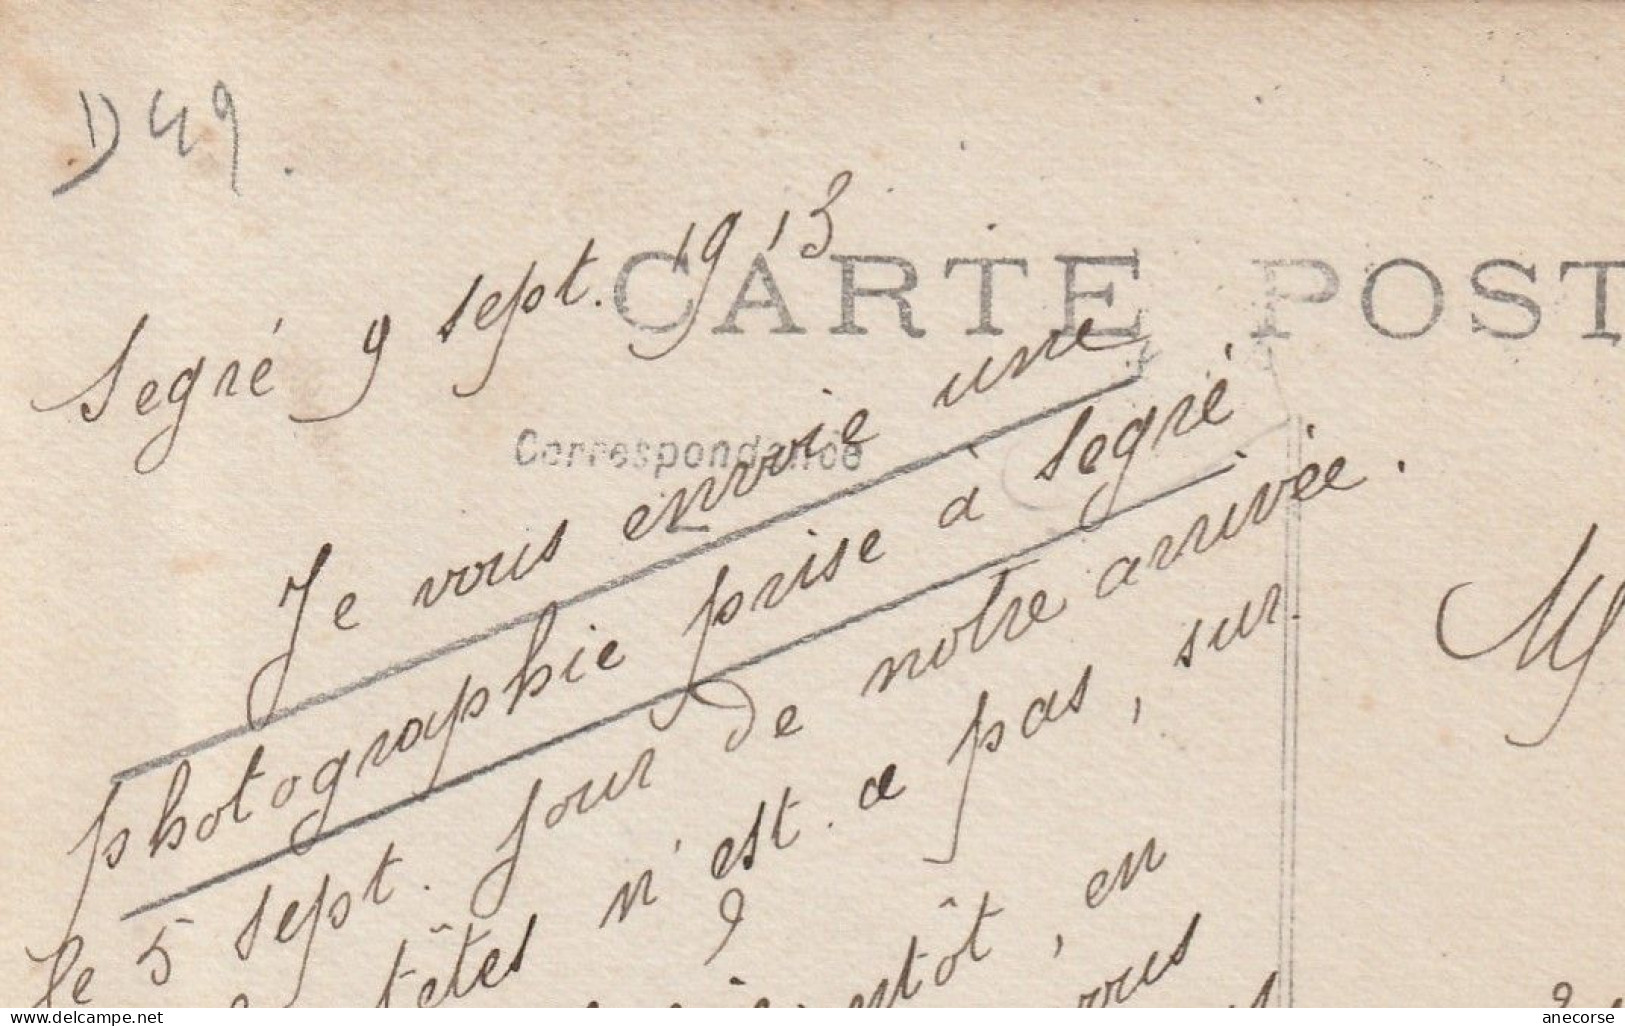 D49.
Segré 9 sept. 1913
CARTE POST
Correspondance
Je vous envoie une
photographie prise à Segré,
le 5 sept. jour de notre arrivée.
têtes n'est-ce pas, sur
en
vous
M
anecorse